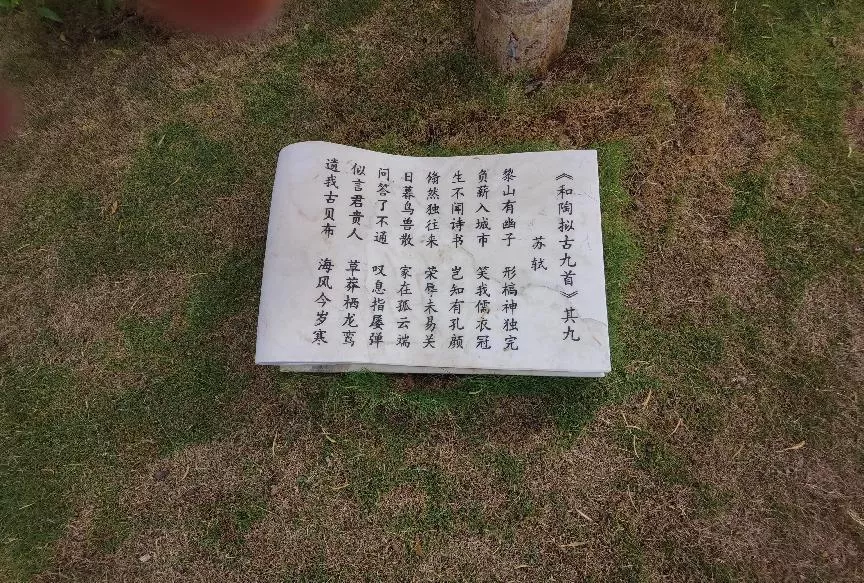 《和陶拟古九首》其九
苏轼
黎山有幽子 形槁神独完
负薪入城市 笑我儒衣冠
生不闻诗书 岂知有孔颜
翛然独往来 荣辱未易关
日暮鸟兽散 家在孤云端
问答了不通 叹息指屡弹
似言君贵人 草莽栖龙鸾
遗我古贝布 海风今岁寒